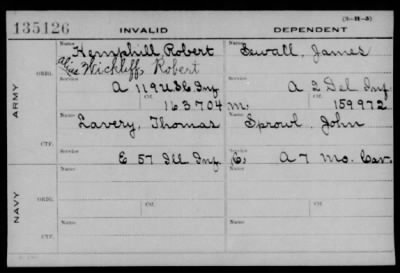 135126 INVALID DEPENDENT (3-H-3)
Name Hemphill, Robert Name Sewall, James
alias Wickliff, Robert
ORIG.
Service A 119 U.S.C. Inf. Service A 2 Del Inf.
Ctf. 163704 m. Ctf. 159972
ARMY
Name Lavery, Thomas Name Sprowl, John
CTF.
Service E 57 Ill Inf. Service C, A 7 Mo. Cav.
NAVY
Name Name
ORIG.
Service Ctf. Service Ctf.
Name Name
CTF.
Service Service